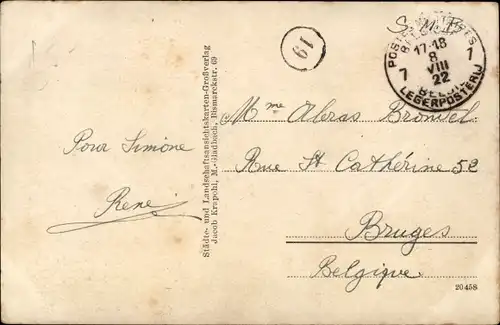 S. M.
POSTES MILITAIRES
BELGIQUE
17-18
8
VIII
22
7 7
BELGIE
LEGERPOSTERIJ
19
Pour Simone
René
Städte- und Landschaftsansichtskarten-Großverlag
Jacob Krapohl, M.-Gladbach, Bismarckstr. 69
Mme Abras
Rue St Cathérine 52
Bruges
Belgique
20458